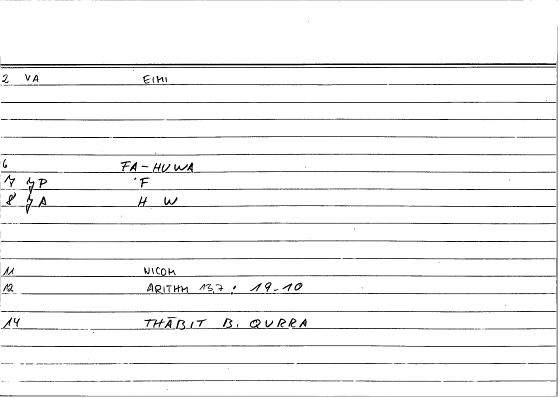 2 VA EIMI
6 FA-HUWA
7 P 'F
8 A H W
11 NICOM
12 ARITHM 13,7 ; 19-10
14 THĀBIT B. QURRA